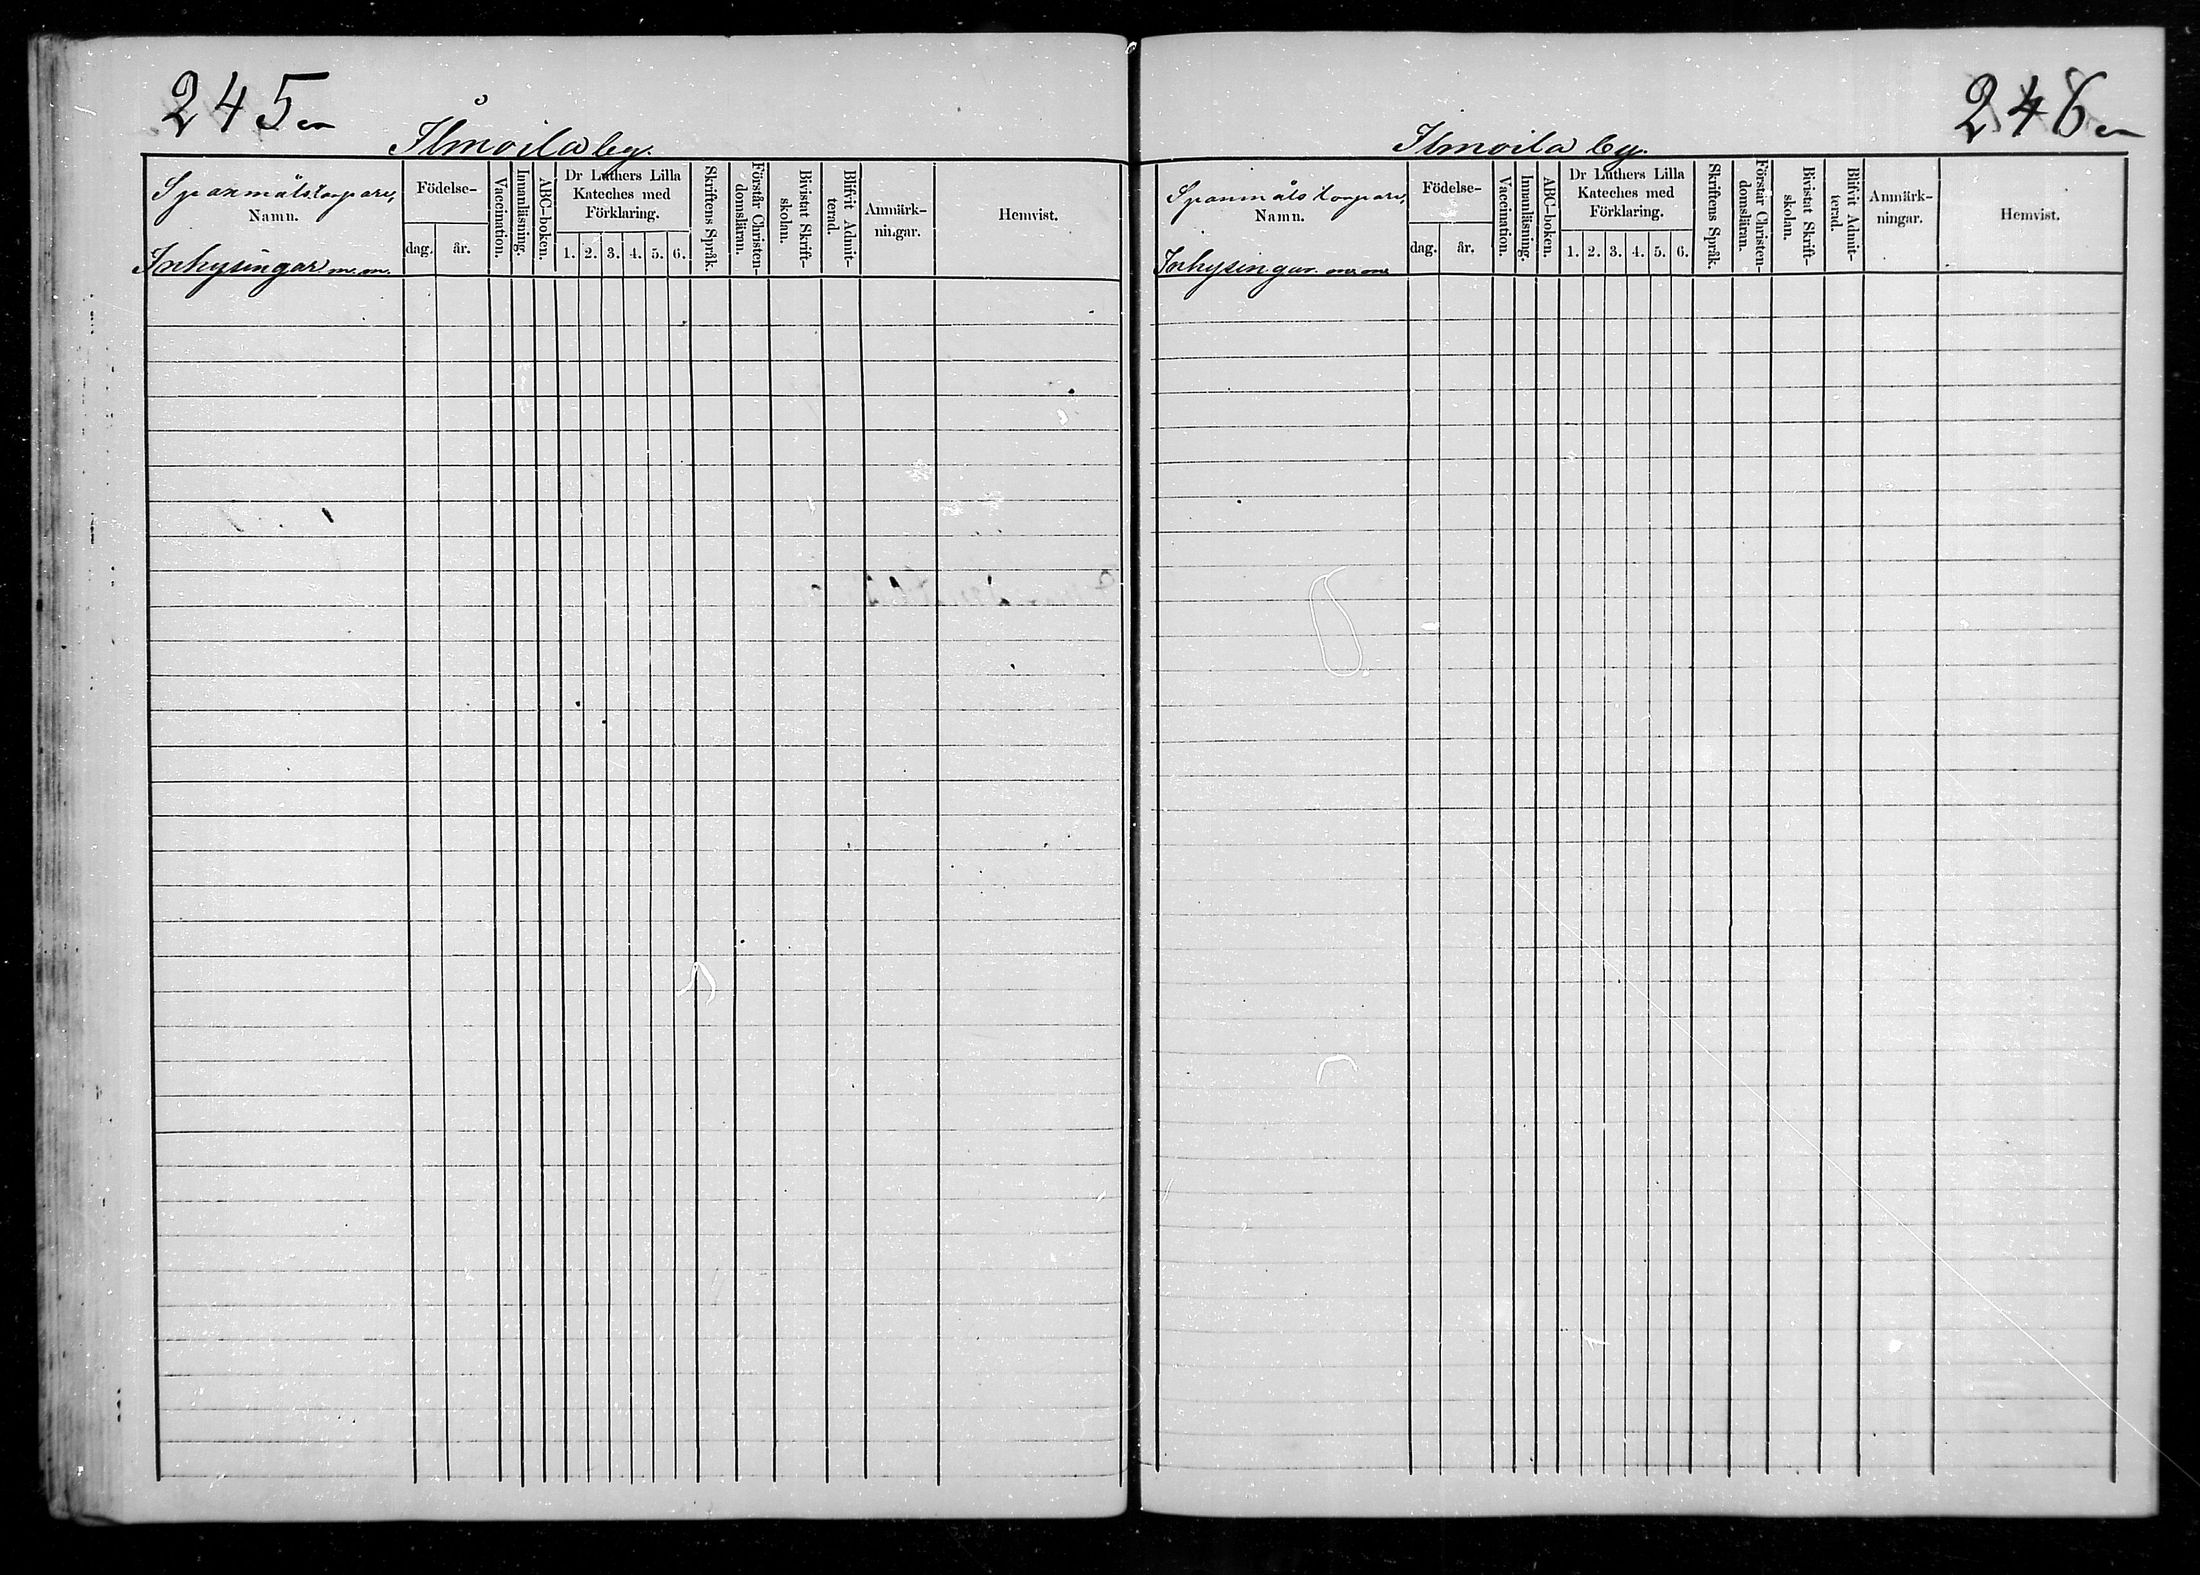 245
Ilmoila by.
Spanmålstorpare,
Namn.
Inhysingar m. m.
Födelse-
dag. år.
Vaccination.
Innanläsning.
ABC-boken.
Dr Luthers Lilla
Kateches med
Förklaring.
1. 2. 3. 4. 5. 6.
Skriftens Språk.
Förstår Christen-
domsläran.
Bivistat Skrift-
skolan.
Blifvit Admit-
terad.
Anmärk-
ningar.
Hemvist.
246
Ilmoila by.
Spanmålstorpare,
Namn.
Inhysingar m. m.
Födelse-
dag. år.
Vaccination.
Innanläsning.
ABC-boken.
Dr Luthers Lilla
Kateches med
Förklaring.
1. 2. 3. 4. 5. 6.
Skriftens Språk.
Förstår Christen-
domsläran.
Bivistat Skrift-
skolan.
Blifvit Admit-
terad.
Anmärk-
ningar.
Hemvist.